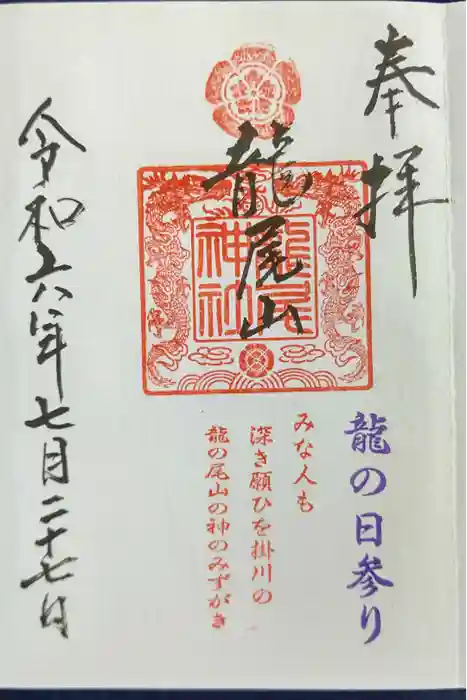 奉拝
龍尾山
龍尾神社
龍の日参り
みな人も
深き願ひを掛川の
龍の尾山の神のみずがき
令和六年七月二十七日